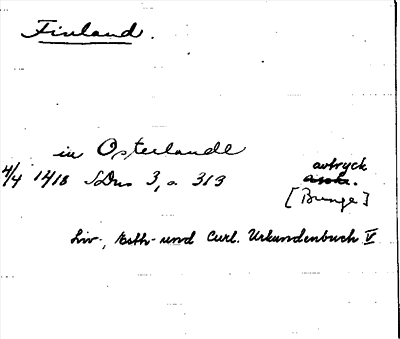 Finland.
in Osterlande
4/4 1418 SDns 3, a 319 avtryck
[Bunge]
Liv-, Esth- und Curl. Urkundenbuch V